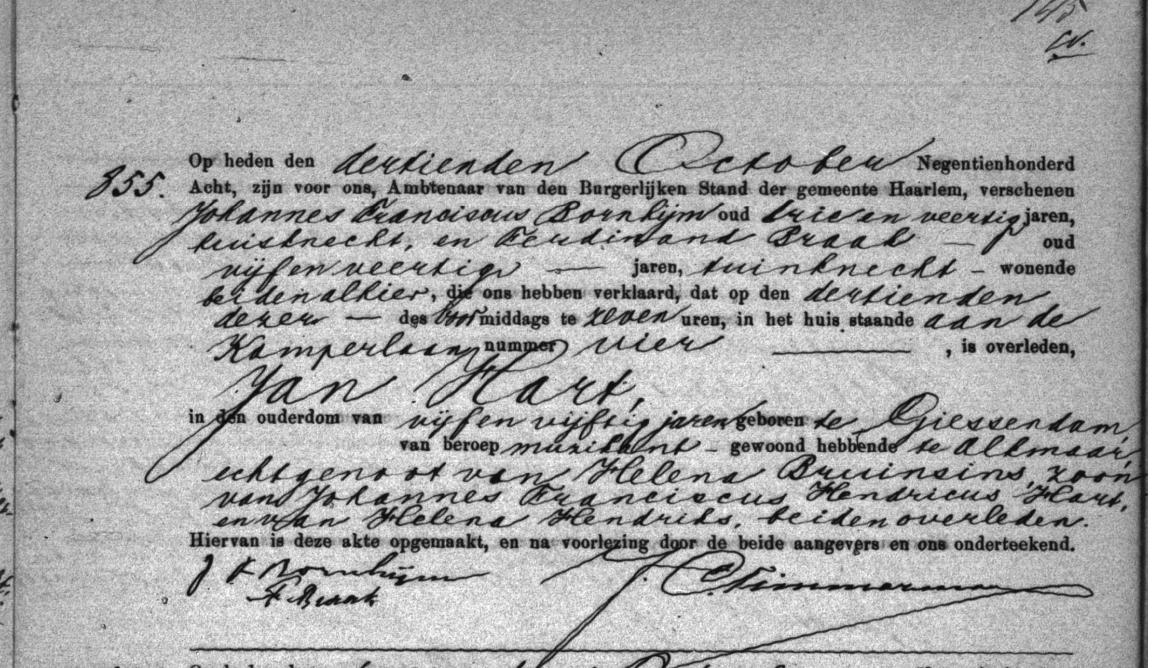 145
Op heden den dertienden October Negentienhonderd
855. Acht, zijn voor ons, Ambtenaar van den Burgerlijken Stand der gemeente Haarlem, verschenen
Johannes Franciscus Bornhijm oud drie en veertig jaren,
huisknecht, en Ferdinand Braak — oud
vijfenveertig — jaren, tuinknecht - wonende
beiden alhier, die ons hebben verklaard, dat op den dertienden
dezer — des Voormiddags te zeven uren, in het huis staande aan de
Kamperlaan nummer vier — , is overleden,
Jan Hart,
in den ouderdom van vijfenvijftig jaren geboren te Giessendam,
van beroep muzikant - gewoond hebbende te Alkmaar,
echtgenoot van Helena Bruinsins, zoon
van Johannes Franciscus Hendricus Hart,
en van Helena Hendriks, beiden overleden.
Hiervan is deze akte opgemaakt, en na voorlezing door de beide aangevers en ons onderteekend.
J F Bornhijm
F. Braak
Timmerman